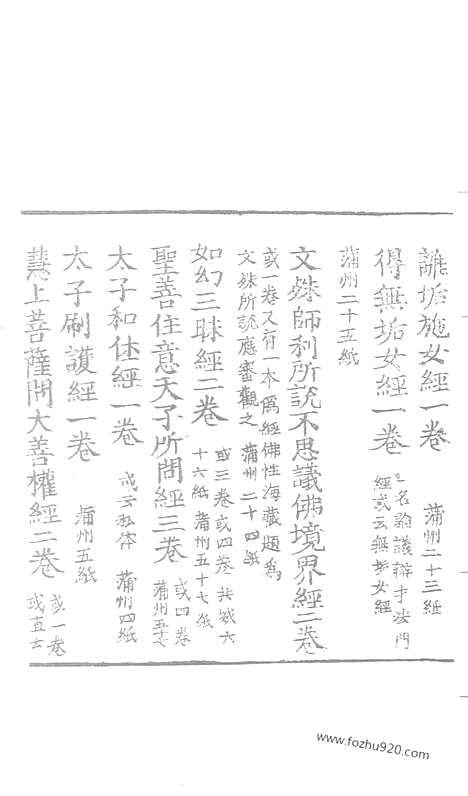 離垢施女經一卷 蒲州二十三紙
得無垢女經一卷 一名論議辯才法門
經或云無垢女經
蒲州二十五紙
文殊師利所說不思議佛境界經二卷
或一卷又有一本爲經佛性海藏題爲
文殊所說應審觀之 蒲州二十四紙
如幻三昧經二卷 或三卷或四卷共成六
十六紙 蒲州五十七紙
聖善住意天子所問經三卷 或四卷
蒲州五十七
太子和休經一卷 或云私休 蒲州四紙
太子刷護經一卷 蒲州五紙
慧上菩薩問大善權經二卷 或一卷
或直云
www.fozhu920.com